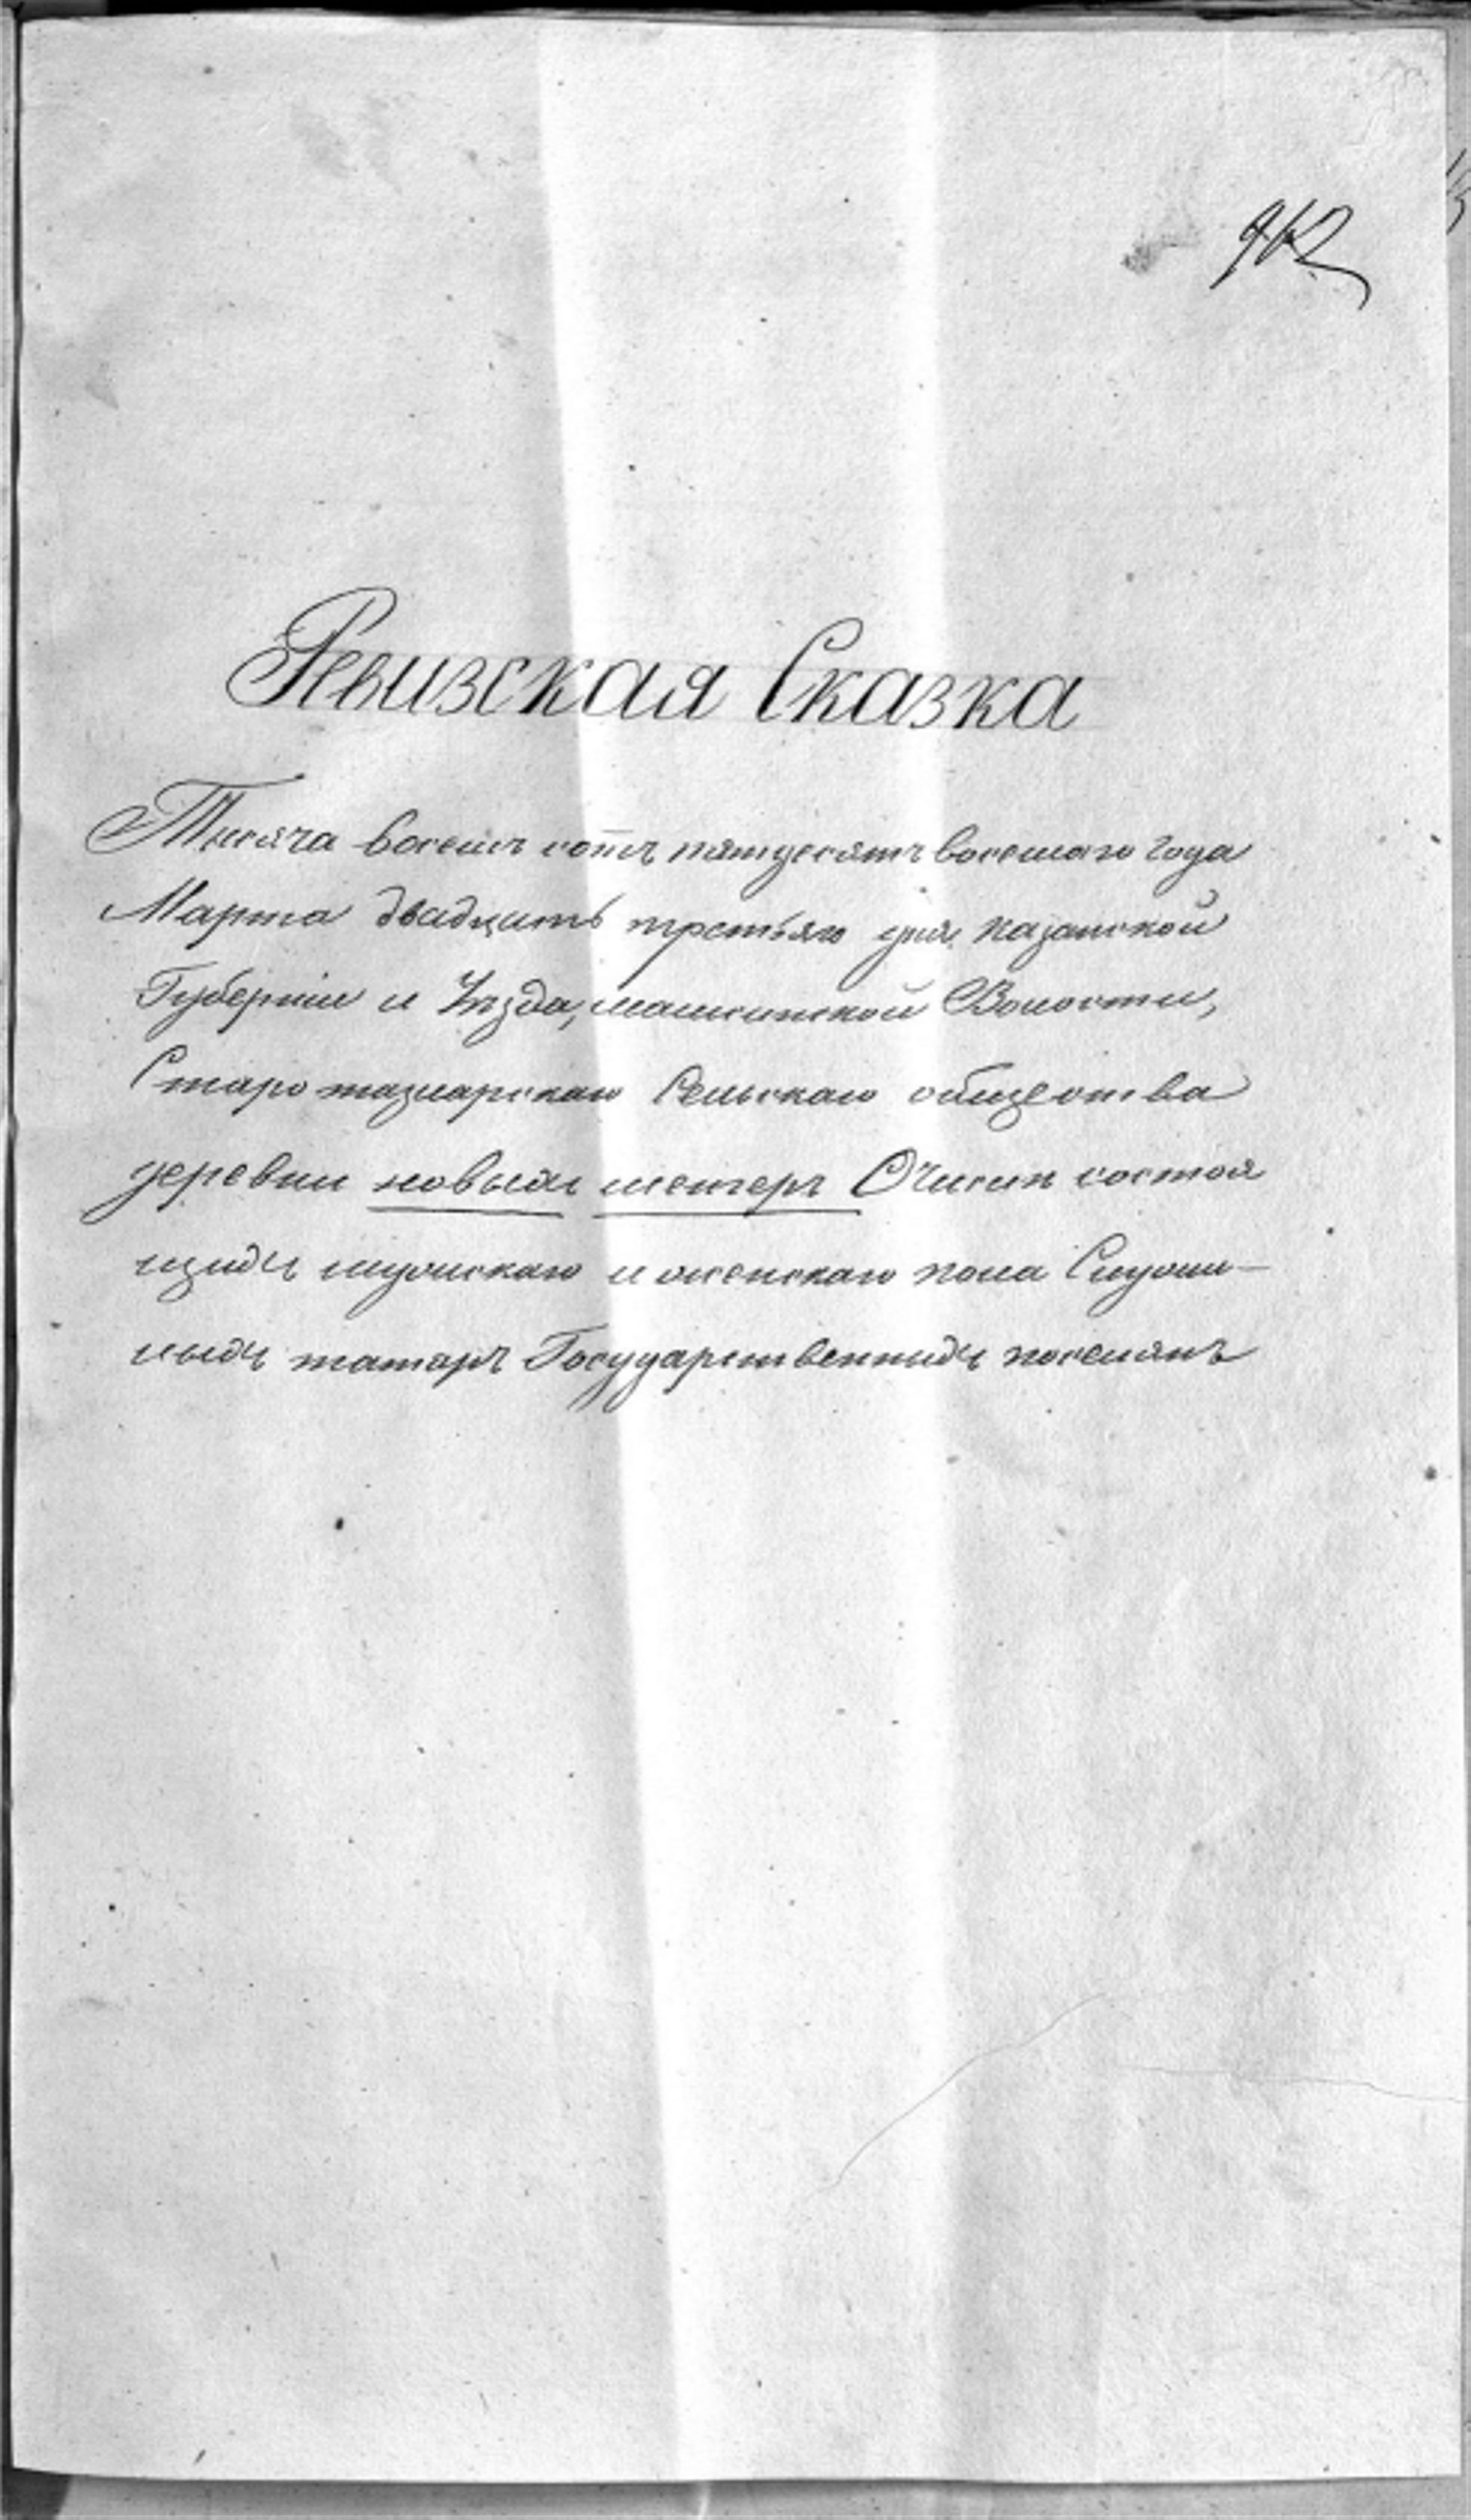 Ревизская Сказка
Тысяча восемь сотъ пятдесятъ восьмаго года
Марта двадцать третьяго дня, Казанской
Губерніи и Уѣзда, Машинской Волости,
Старо тазларскаго Сельскаго общества
деревни новыхъ менгеръ О числѣ состоя
щихъ мужскаго и женскаго пола Служи-
лыхъ татаръ Государственныхъ поселянъ